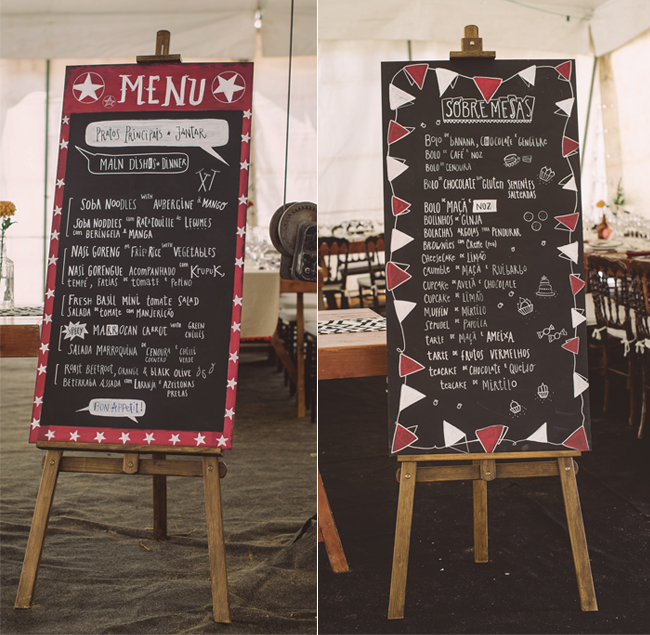 MENU
PRATOS PRINCIPAIS • JANTAR
MAIN DISHES • DINNER
SOBA NOODLES WITH AUBERGINE & MANGO
SOBA NOODLES COM RATATOUILLE DE LEGUMES
COM BERINGELA & MANGA
NASI GORENG OR FRIED RICE WITH VEGETABLES
NASI GORENGUE ACOMPANHADO COM KRUPUK
TEMPÉ, FATIAS DE TOMATE E PEPINO
FRESH BASIL MINI TOMATE SALAD
SALADA DE TOMATE COM MANJERICÃO
SPICY MARROCAN CARROT WITH GREEN CHILLIS
SALADA MARROQUINA DE CENOURA COENTRO E CHILLIS VERDE
ROAST BEETROOT, ORANGE & BLACK OLIVE
BETERRABA ASSADA COM LARANJA E AZEITONAS
PRETAS
BON APPETIT!
SOBREMESAS
BOLO DE BANANA, CHOCOLATE E GENGIBRE
BOLO DE CAFÉ E NOZ
BOLO DE CENOURA
BOLO DE CHOCOLATE SEM GLUTEN SEMENTES SALTEADAS
BOLO DE MAÇÃ E NOZ
BOLINHOS DE GINJA
BOLACHAS ARGOLAS PARA PENDURAR
BROWNIES COM CREME
CHEESECAKE DE LIMÃO
CRUMBLE DE MAÇÃ E RUIBARBO
CUPCAKE DE AVELÃ E CHOCOLATE
CUPCAKE DE LIMÃO
MUFFIN DE MIRTILO
STRUDEL DE PAPOILA
TARTE DE MAÇÃ E AMEIXA
TARTE DE FRUTOS VERMELHOS
TEACAKE DE CHOCOLATE E QUEIJO
TEACAKE DE MIRTILO